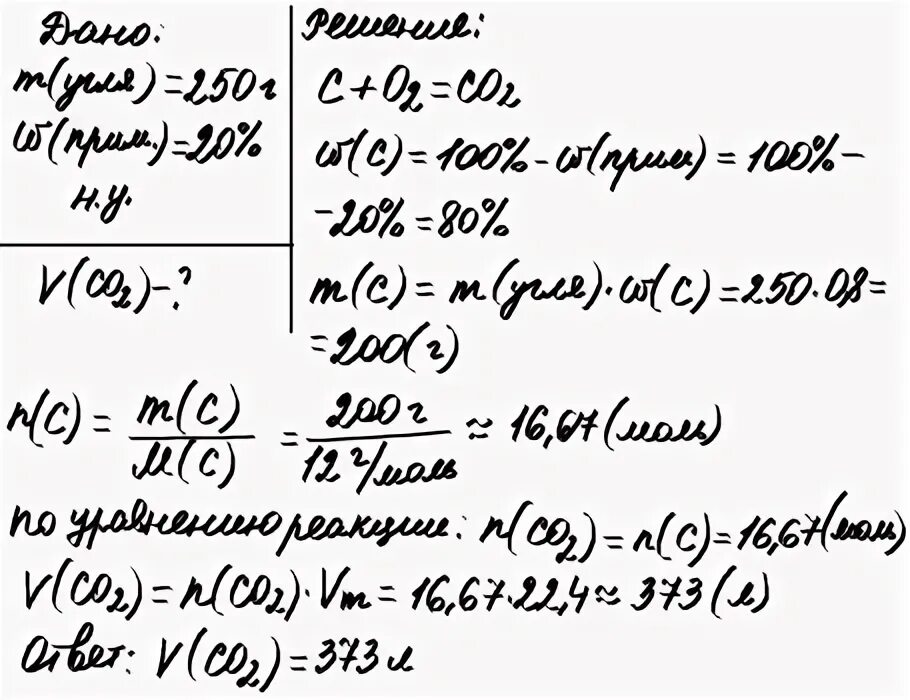 Дано:
m(угля) = 250 г
ω(прим.) = 20%
н.у.
V(CO₂) - ?
Решение:
C + O₂ = CO₂
ω(C) = 100% - ω(прим) = 100% -
- 20% = 80%
m(C) = m(угля) · ω(C) = 250 · 0,8 =
= 200 (г)
n(C) = m(C) / M(C) = 200 г / 12 г/моль ≈ 16,67 (моль)
по уравнению реакции: n(CO₂) = n(C) = 16,67 (моль)
V(CO₂) = n(CO₂) · Vm = 16,67 · 22,4 ≈ 373 (л)
Ответ: V(CO₂) = 373 л